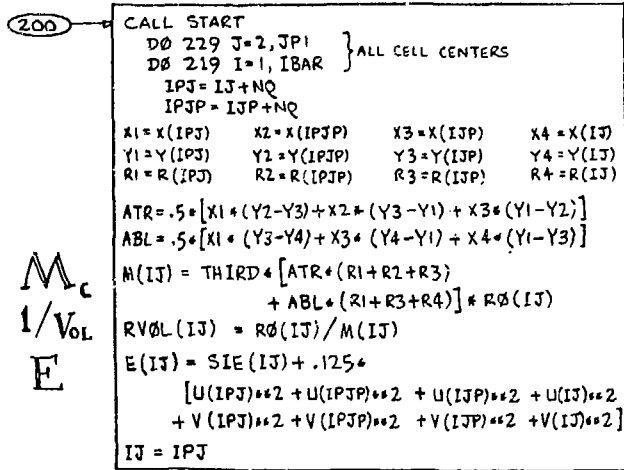 200
CALL START
DØ 229 J=2,JP1
DØ 219 I=1, IBAR
} ALL CELL CENTERS
IPJ = IJ+NQ
IPJP = IJP+NQ
X1 = X(IPJ) X2 = X(IPJP) X3 = X(IJP) X4 = X(IJ)
Y1 = Y(IPJ) Y2 = Y(IPJP) Y3 = Y(IJP) Y4 = Y(IJ)
R1 = R(IPJ) R2 = R(IPJP) R3 = R(IJP) R4 = R(IJ)
ATR = .5*[X1*(Y2-Y3)+X2*(Y3-Y1)+X3*(Y1-Y2)]
ABL = .5*[X1*(Y3-Y4)+X3*(Y4-Y1)+X4*(Y1-Y3)]
M(IJ) = THIRD*[ATR*(R1+R2+R3)
+ ABL*(R1+R3+R4)]*RØ(IJ)
RVØL(IJ) = RØ(IJ)/M(IJ)
E(IJ) = SIE(IJ) + .125*
[U(IPJ)**2 + U(IPJP)**2 + U(IJP)**2 + U(IJ)**2
+ V(IPJ)**2 + V(IPJP)**2 + V(IJP)**2 + V(IJ)**2]
IJ = IPJ
Mc
1/VOL
E